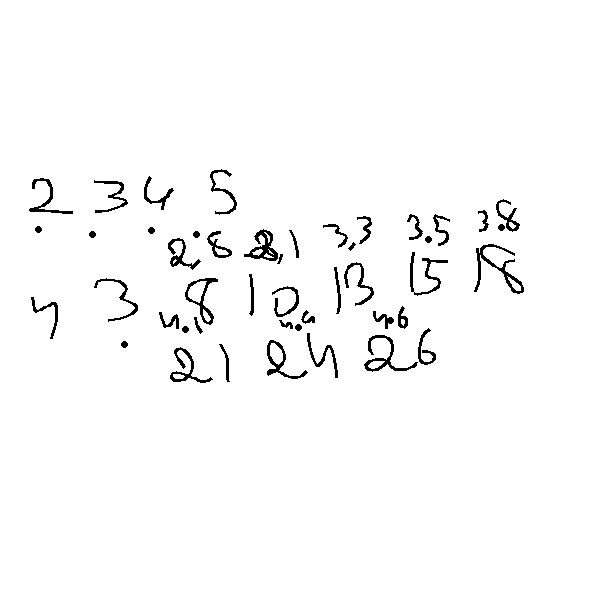 2 3 4 5
2,8 3,1 3,3 3.5 3.8
4 3 8 10 13 15 18
4.1 4.4 4.6
21 24 26